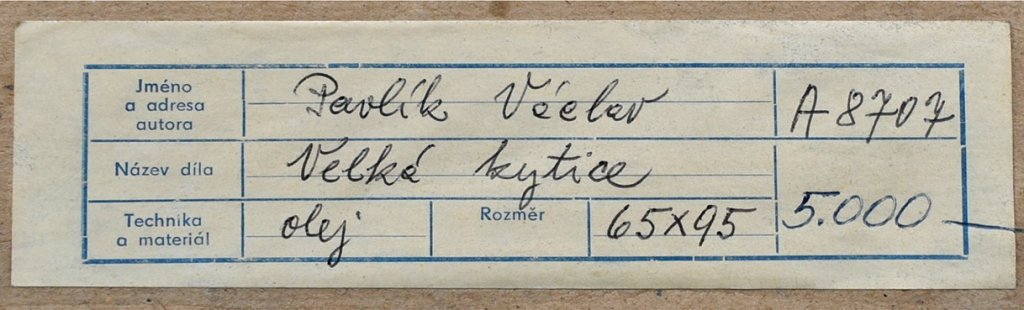 Jméno
a adresa
autora
Pavlík Václav
A 8707
Název díla
Velká kytice
Technika
a materiál
olej
Rozměr
65x95
5.000 —